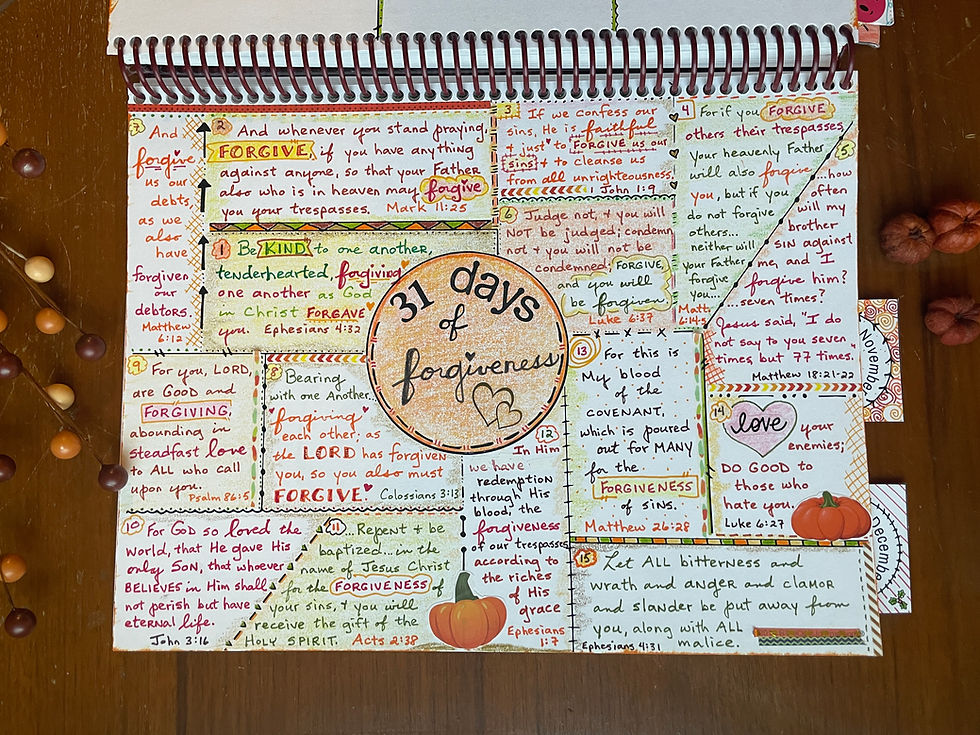 31 days
of
forgiveness
1 Be KIND to one another,
tenderhearted, forgiving
one another as God
in Christ FORGAVE
you. Ephesians 4:32
2 And whenever you stand praying,
FORGIVE, if you have anything
against anyone, so that your Father
also who is in heaven may forgive
you your trespasses. Mark 11:25
3 If we confess our
sins, He is faithful
& just to FORGIVE us our
sins & to cleanse us
from all unrighteousness.
1 John 1:9
4 For if you FORGIVE
others their trespasses
your heavenly Father
will also forgive
you, but if you
do not forgive
others...
neither will
your Father
forgive
you...
Matt.
6:14
5 ...how
often
will my
brother
SIN against
me, and I
forgive him?
...seven times?
Jesus said, "I do
not say to you seven
times, but 77 times.
Matthew 18:21-22
6 Judge not, & you will
NOT be judged; condemn
not & you will not be
condemned; FORGIVE,
and you will
be forgiven.
Luke 6:37
7 And
forgive
us our
debts,
as we
also
have
forgiven
our
debtors.
Matthew
6:12
8 Bearing
with one Another...
forgiving
each other; as
the LORD has forgiven
you, so you also must
FORGIVE. Colossians 3:13
9 For you, LORD,
are GOOD and
FORGIVING,
abounding in
steadfast love
to ALL who call
upon you.
Psalm 86:5
10 For GOD so loved the
World, that He gave His
only SON, that whoever
BELIEVES in Him shall
not perish but have
eternal life.
John 3:16
11 ...Repent & be
baptized...in the
name of Jesus Christ
for the FORGIVENESS of
your sins, & you will
receive the gift of the
HOLY SPIRIT. Acts 2:38
12
In Him
we have
redemption
through His
blood, the
forgiveness
of our trespasses
according to
the riches
of His
grace
Ephesians
1:7
13 For this is
My blood
of the
COVENANT,
which is poured
out for MANY
for the
FORGIVENESS
of sins.
Matthew 26:28
14 love your
enemies;
DO GOOD to
those who
hate you.
Luke 6:27
15 Let ALL bitterness and
wrath and anger and clamor
and slander be put away from
you, along with ALL
malice.
Ephesians 4:31
November
December